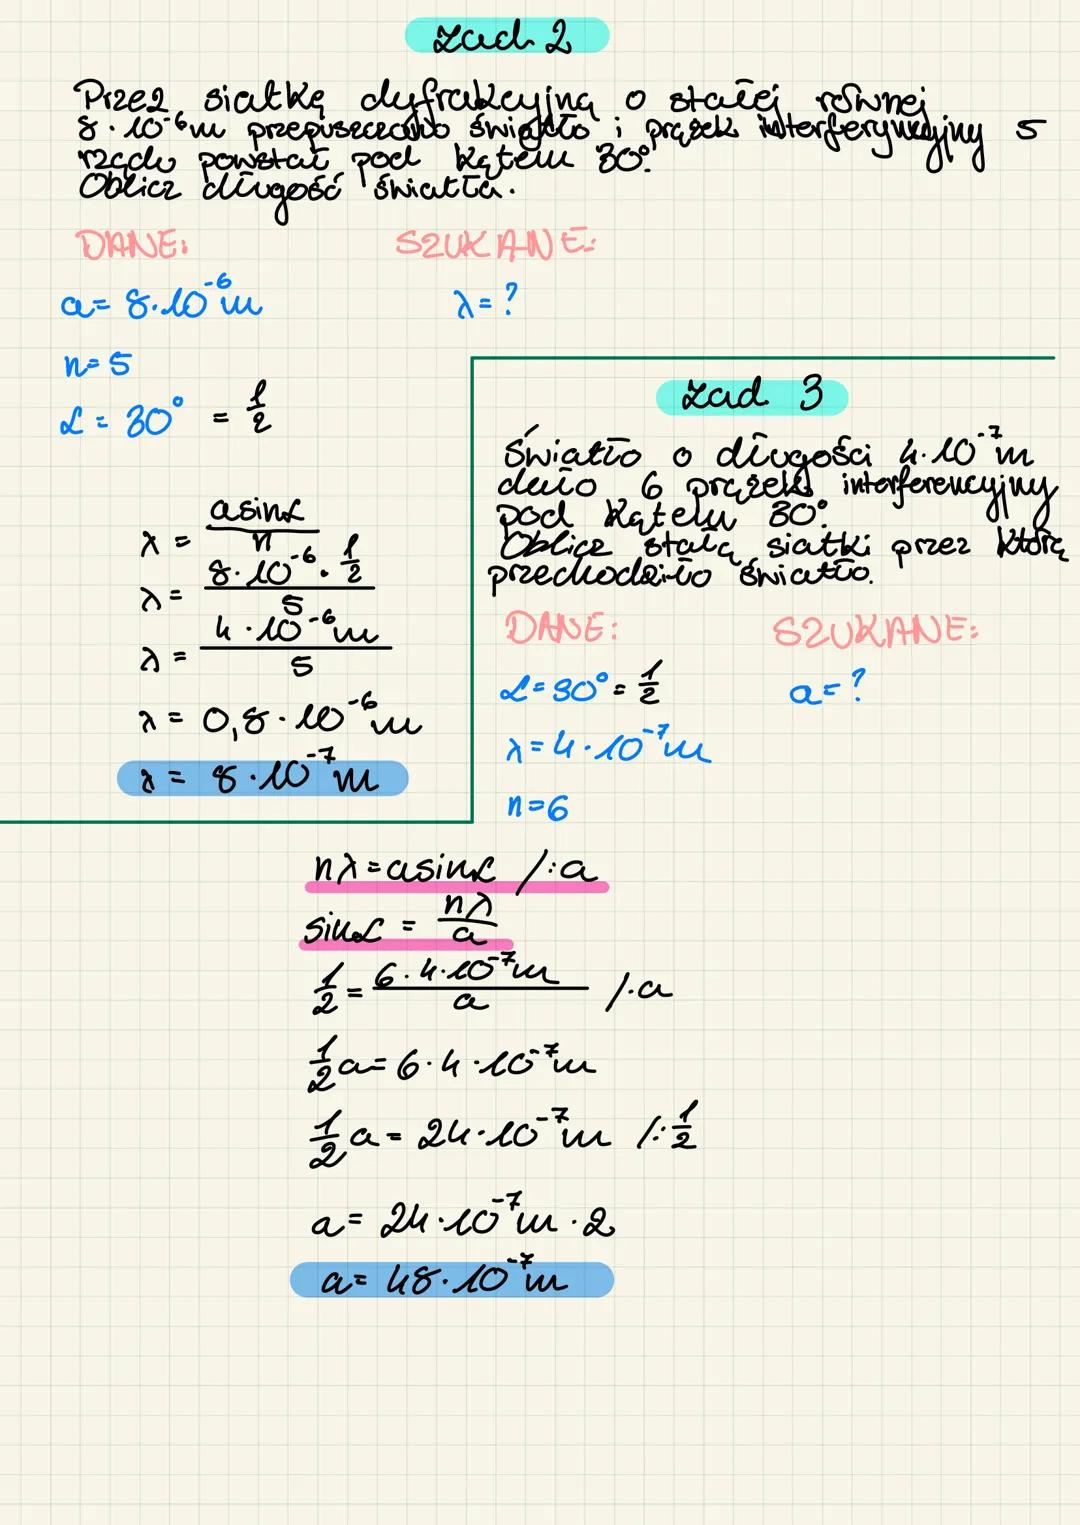 Zad 2
Przez siatkę dyfrakcyjną o stałej równej
8·10⁻⁶m przepuszczono światło i prążek interferyncyjny 5
rzędu powstał pod kątem 30°.
Oblicz długość światła.
DANE:
SZUKANE:
a= 8·10⁻⁶m
λ=?
n=5
α=30° = 1/2
λ = asinα/n
λ = 8·10⁻⁶·1/2 / 5
λ = 4·10⁻⁶m / 5
λ = 0,8·10⁻⁶m
λ = 8·10⁻⁷m
Zad 3
Światło o długości 4·10⁻⁷m
dało 6 prążek interferencyjny
pod kątem 30°.
Oblicz stałą siatki przez którą
przechodziło światło.
DANE:
SZUKANE:
α=30°=1/2
a=?
λ=4·10⁻⁷m
n=6
nλ=asinα /:a
sinα = nλ/a
1/2 = 6·4·10⁻⁷m/a /·a
1/2a=6·4·10⁻⁷m
1/2a=24·10⁻⁷m /:1/2
a=24·10⁻⁷m·2
a=48·10⁻⁷m